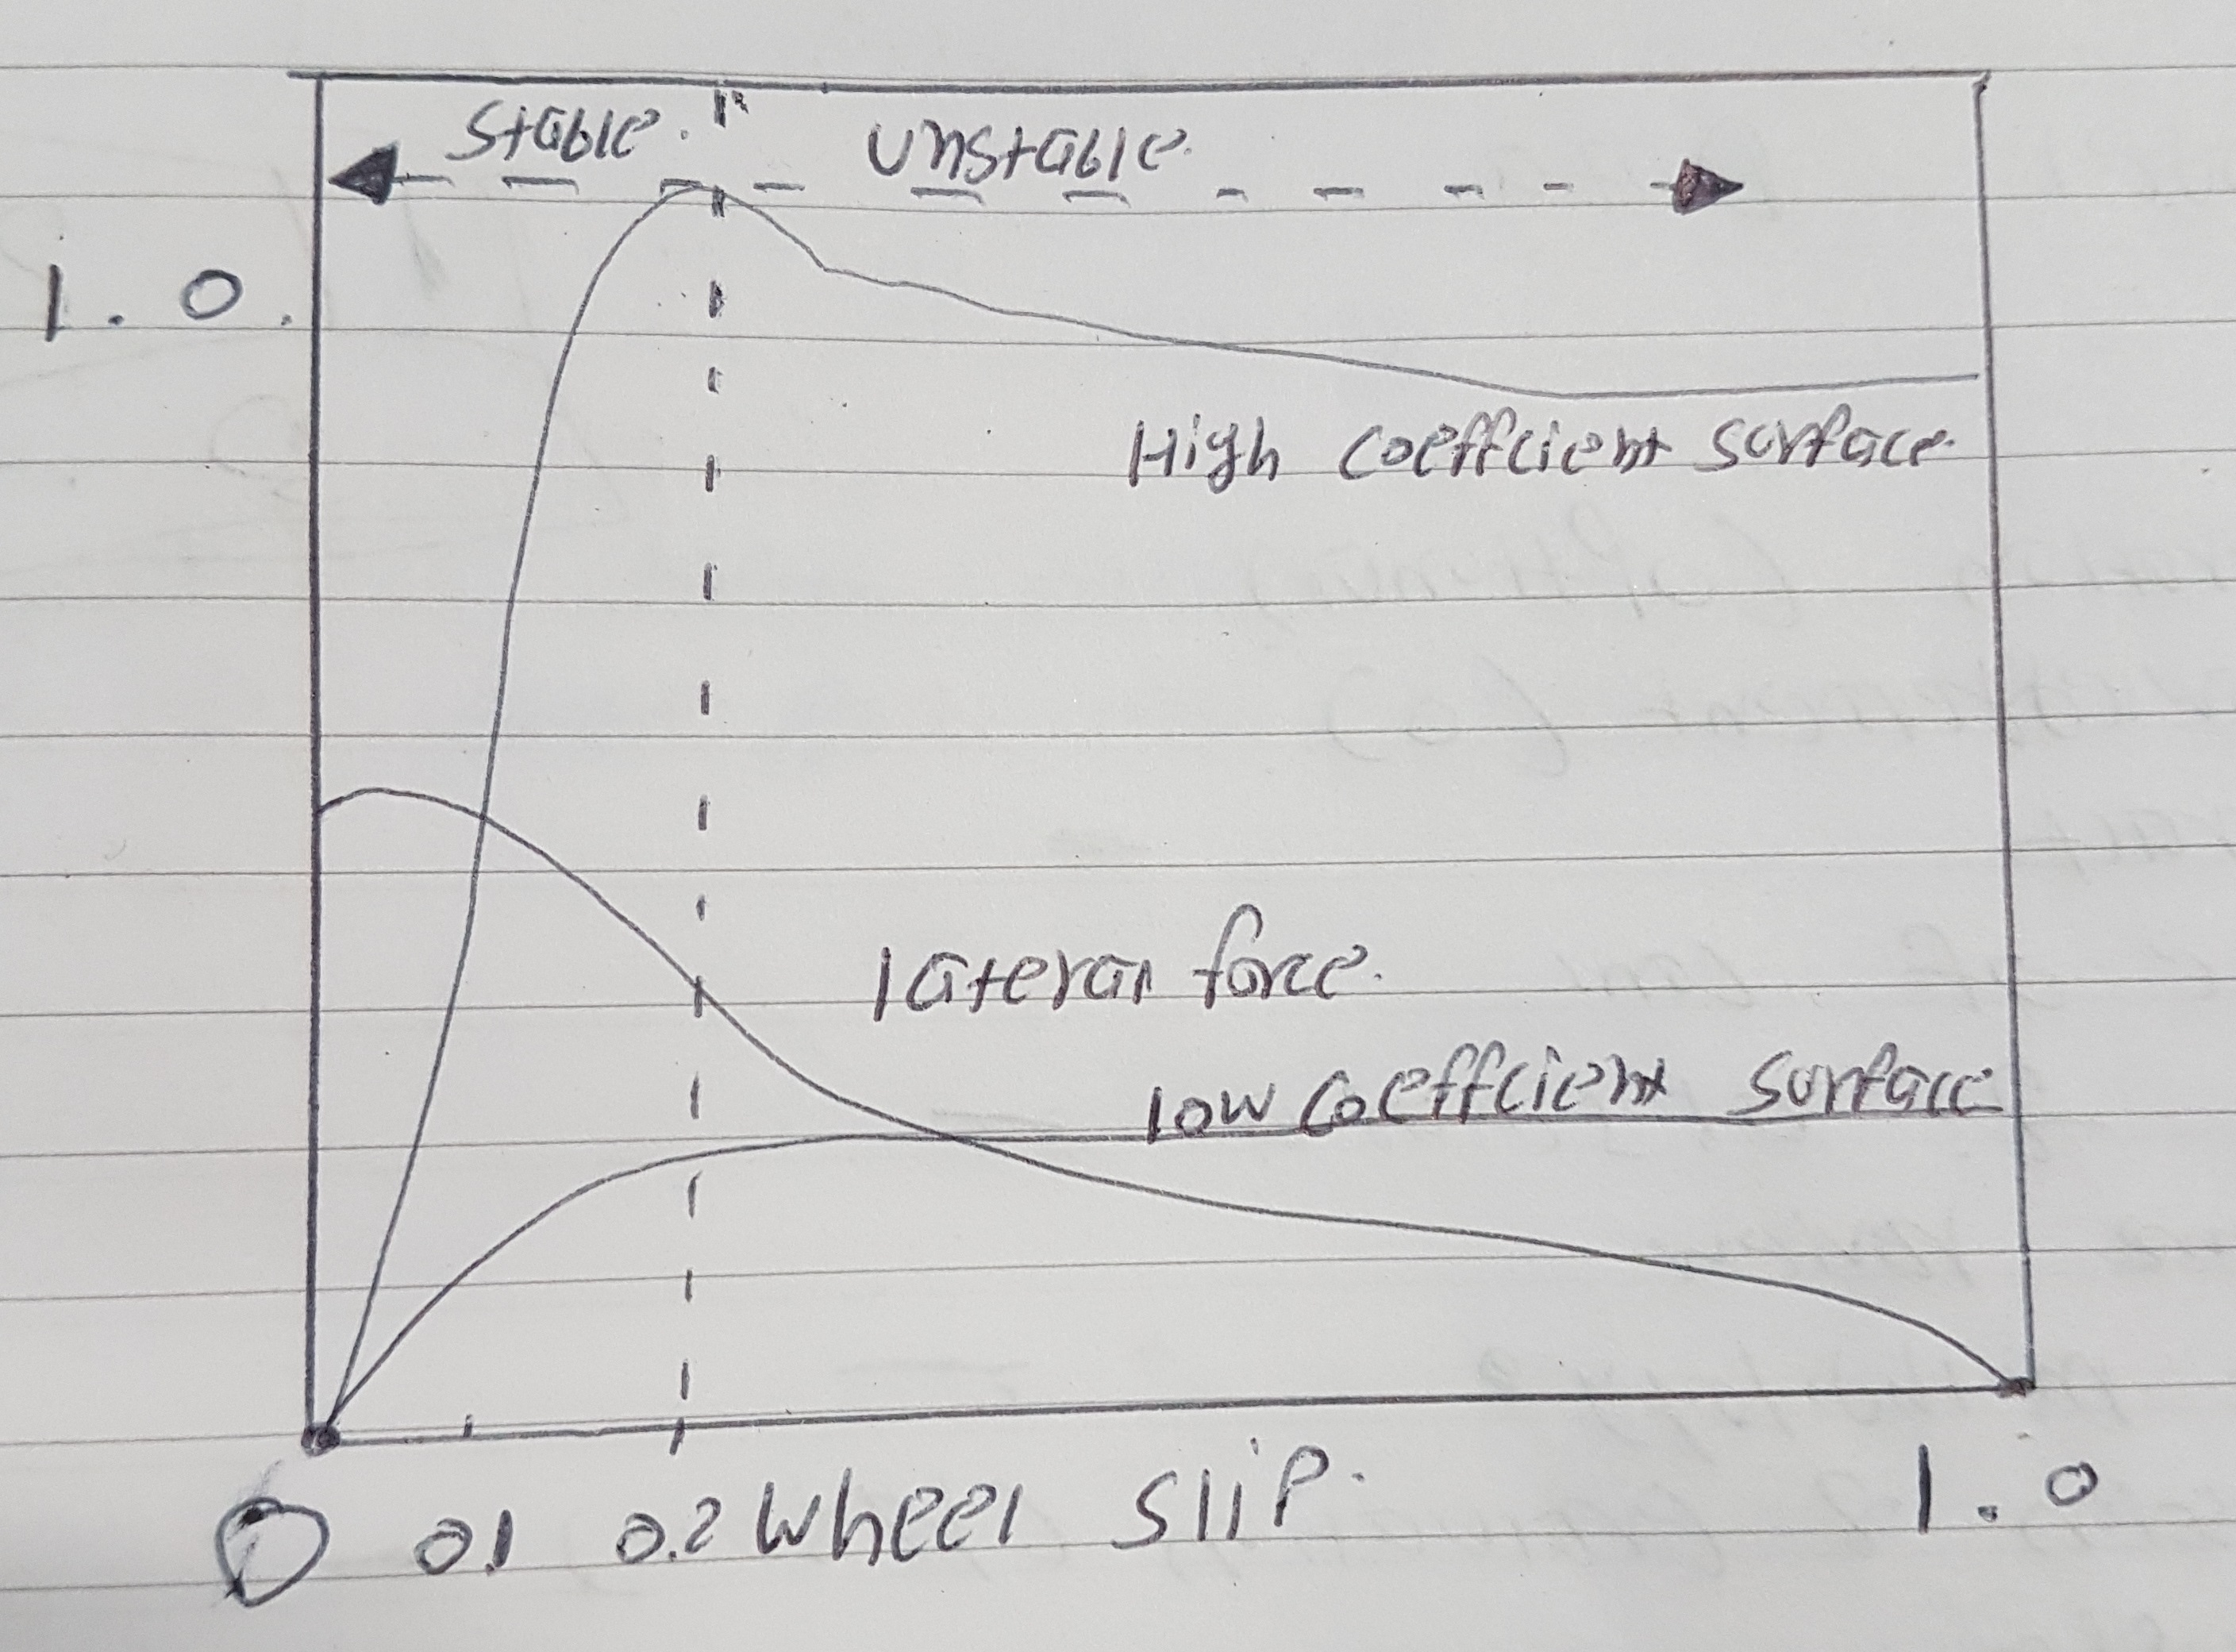 Stable.
Unstable.
1.0.
High Coeffcient Surface
lateral force.
low Coeffcient Surface
0 0.1 0.2 Wheel Slip. 1.0